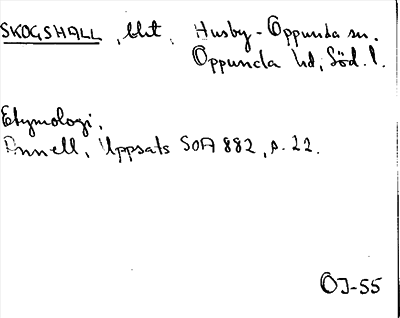 SKOGSHALL, tht, Husby-Oppunda sn.
Oppunda hd, Söd. l.
Etymologi.
Annell, Uppsats SOA 882, s. 22.
OJ-55